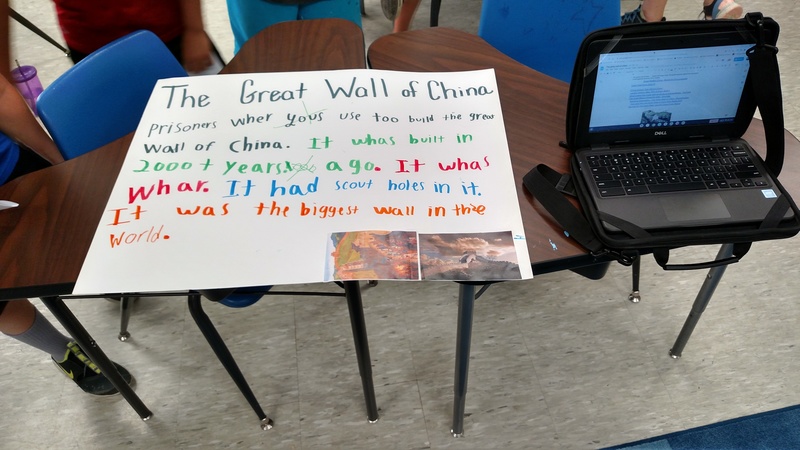 The Great Wall of China
Prisoners wher yous use too build the great
Wall of China. It whas built in
2000+ years ago. It whas
Whar. It had scout holes in it.
It was the biggest wall in thize
World.
DELL